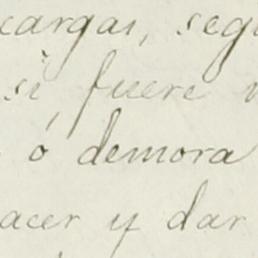 cargar, segu
si, fuere
ó demora
acer y dar